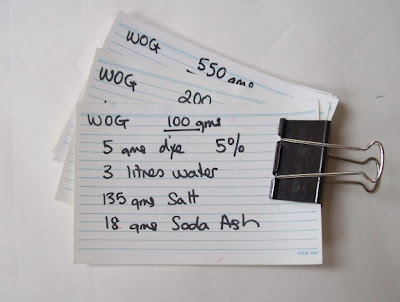 WOG 550 gms
WOG 200
WOG 100 gms
5 gms dye 5%
3 litres water
135 gms Salt
18 gms Soda Ash